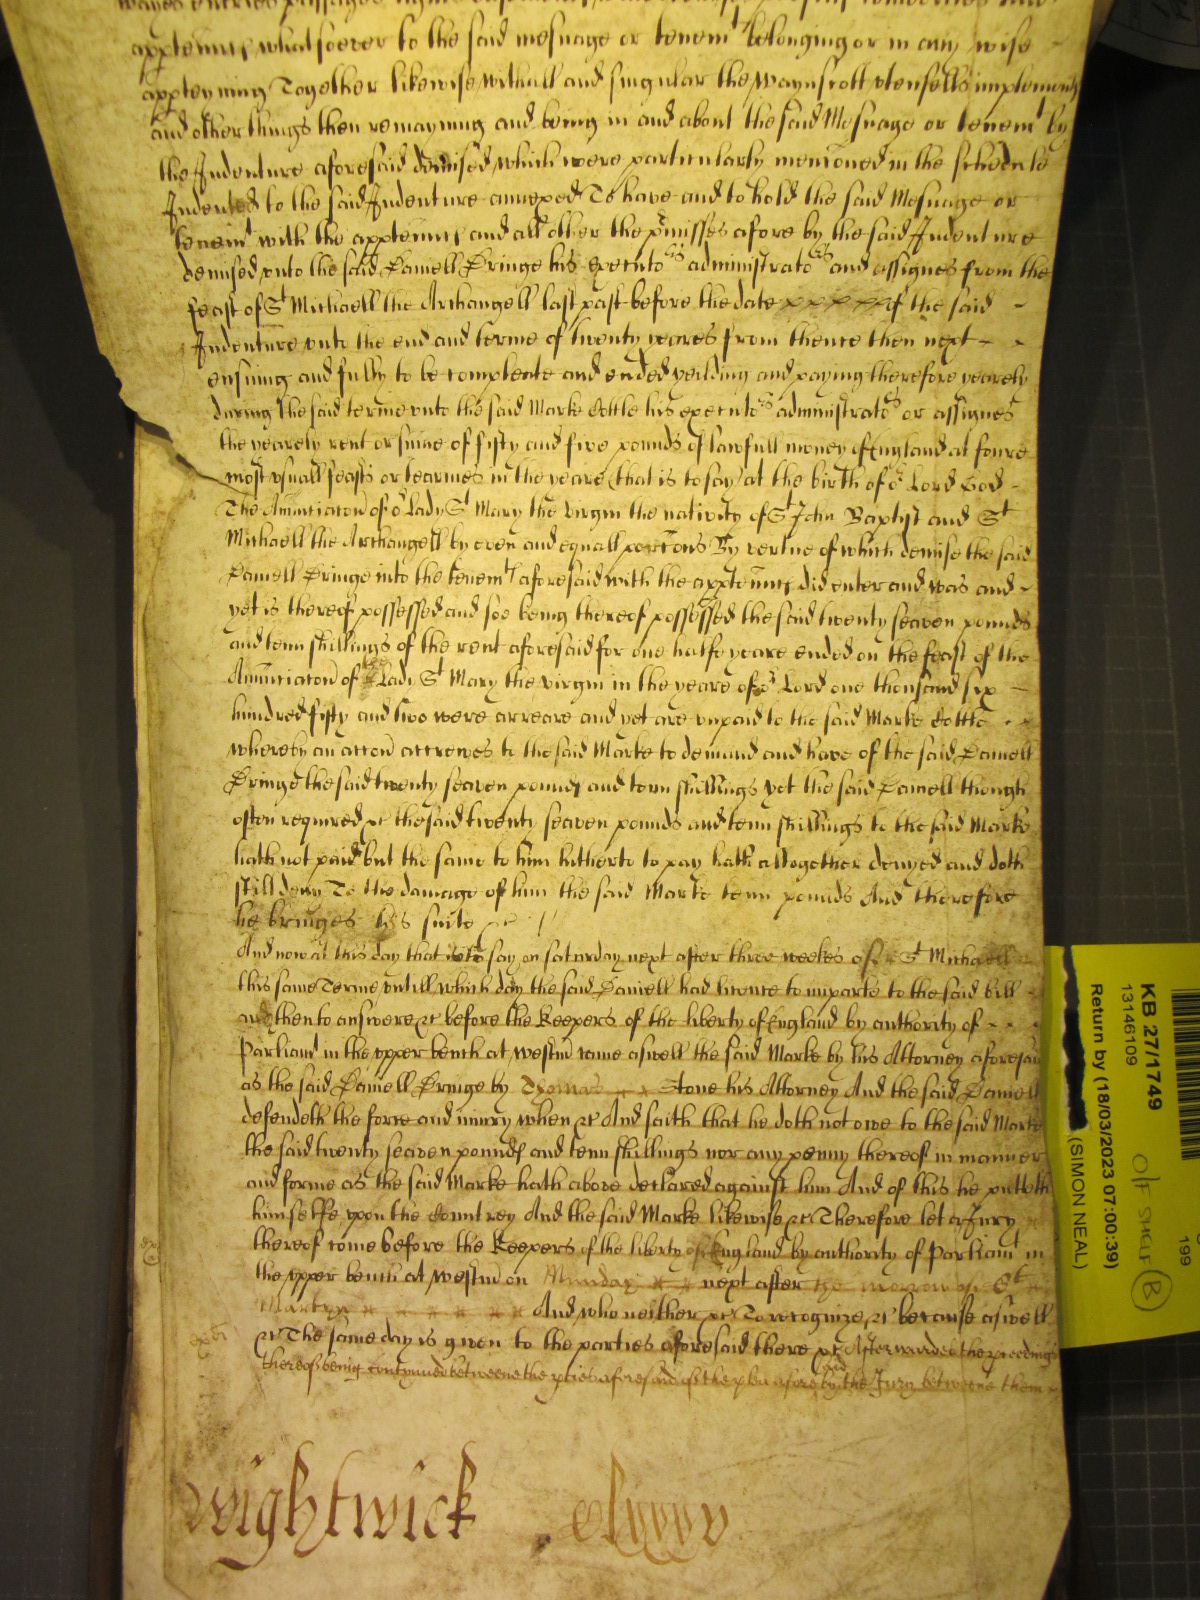 wayes entries passages
apptenncs whatsoever to the said mesuage or tenemt belonging or in any wise
appteyning Together likewise withall and singular the Waynscott utensells implements
and other things then remayning and being in and about the said Mesuage or tenemt by
the Indenture aforesaid demised which were particularly menconed in the schedule
Indented to the said Indenture annexed To have and to hold the said Mesuage or
tenemt with the apptenncs and all other the pmisses afore by the said Indenture
demised unto the said Daniell Bringe his executors administrators and assignes from the
feast of St Michaell the Archangell last past before the date of the said
Indenture unto the end and terme of twenty yeares from thence then next
ensuing and fully to be compleate and ended yeilding and paying therefore yearely
during the said terme unto the said Marke Cottle his executors administrators or assignes
the yearely rent or sume of fifty and five pounds of lawfull money of England at foure
most usuall feasts or tearmes in the yeare (that is to say) at the birth of or Lord God
The Annuncacon of or Lady St Mary the virgin the nativity of St John Baptist and St
Michaell the Archangell by even and equall porcons By vertue of which demise the said
Daniell Bringe into the tenemt aforesaid with the apptenncs did enter and was and
yet is thereof possessed and soe being thereof possessed the said twenty seaven pounds
and tenn shillings of the rent aforesaid for one halfe yeare ended on the feast of the
Annuncacon of or Lady St Mary the virgin in the yeare of or Lord one thousand six
hundred fifty and two were arreare and yet are unpaid to the said Marke Cottle
whereby an accon accrewes to the said Marke to demand and have of the said Daniell
Bringe the said twenty seaven pounds and tenn shillings yet the said Daniell though
often required &c the said twenty seaven pounds and tenn shillings to the said Marke
hath not paid but the same to him hitherto to pay hath altogether denyed and doth
still deny To the damage of him the said Marke tenn pounds And therefore
he bringes his suite &c
And now at this day that is to say on saturday next after three weekes of St Michaell
this same Terme untill which day the said Daniell had licence to imparle to the said bill
and then to answere &c before the Keepers of the liberty of England by authority of
Parliamt in the upper bench at Westmr came aswell the said Marke by his Attorney aforesaid
as the said Daniell Bringe by Thomas Stone his Attorney And the said Daniell
defendeth the force and iniury when &c And saith that he doth not owe to the said Marke
the said twenty seaven pounds and tenn shillings nor any penny thereof in manner
and forme as the said Marke hath above declared against him And of this he putteth
himselfe upon the Countrey And the said Marke likewise &c Therefore let a Jury
thereof come before the Keepers of the liberty of England by authority of Parliamt in
the upper bench at Westmr on Munday next after the morrow of St
Martyn And who neither &c To recognize &c because aswell
&c The same day is given to the parties aforesaid there &c Afterwardes the pceedings
thereof being contynued betweene the pties aforesaid of the plea afore by the Jury betweene them
Wightwick
KB 27/1749
13146109
Return by (18/03/2023 07:00:39)
(SIMON NEAL)
199
B